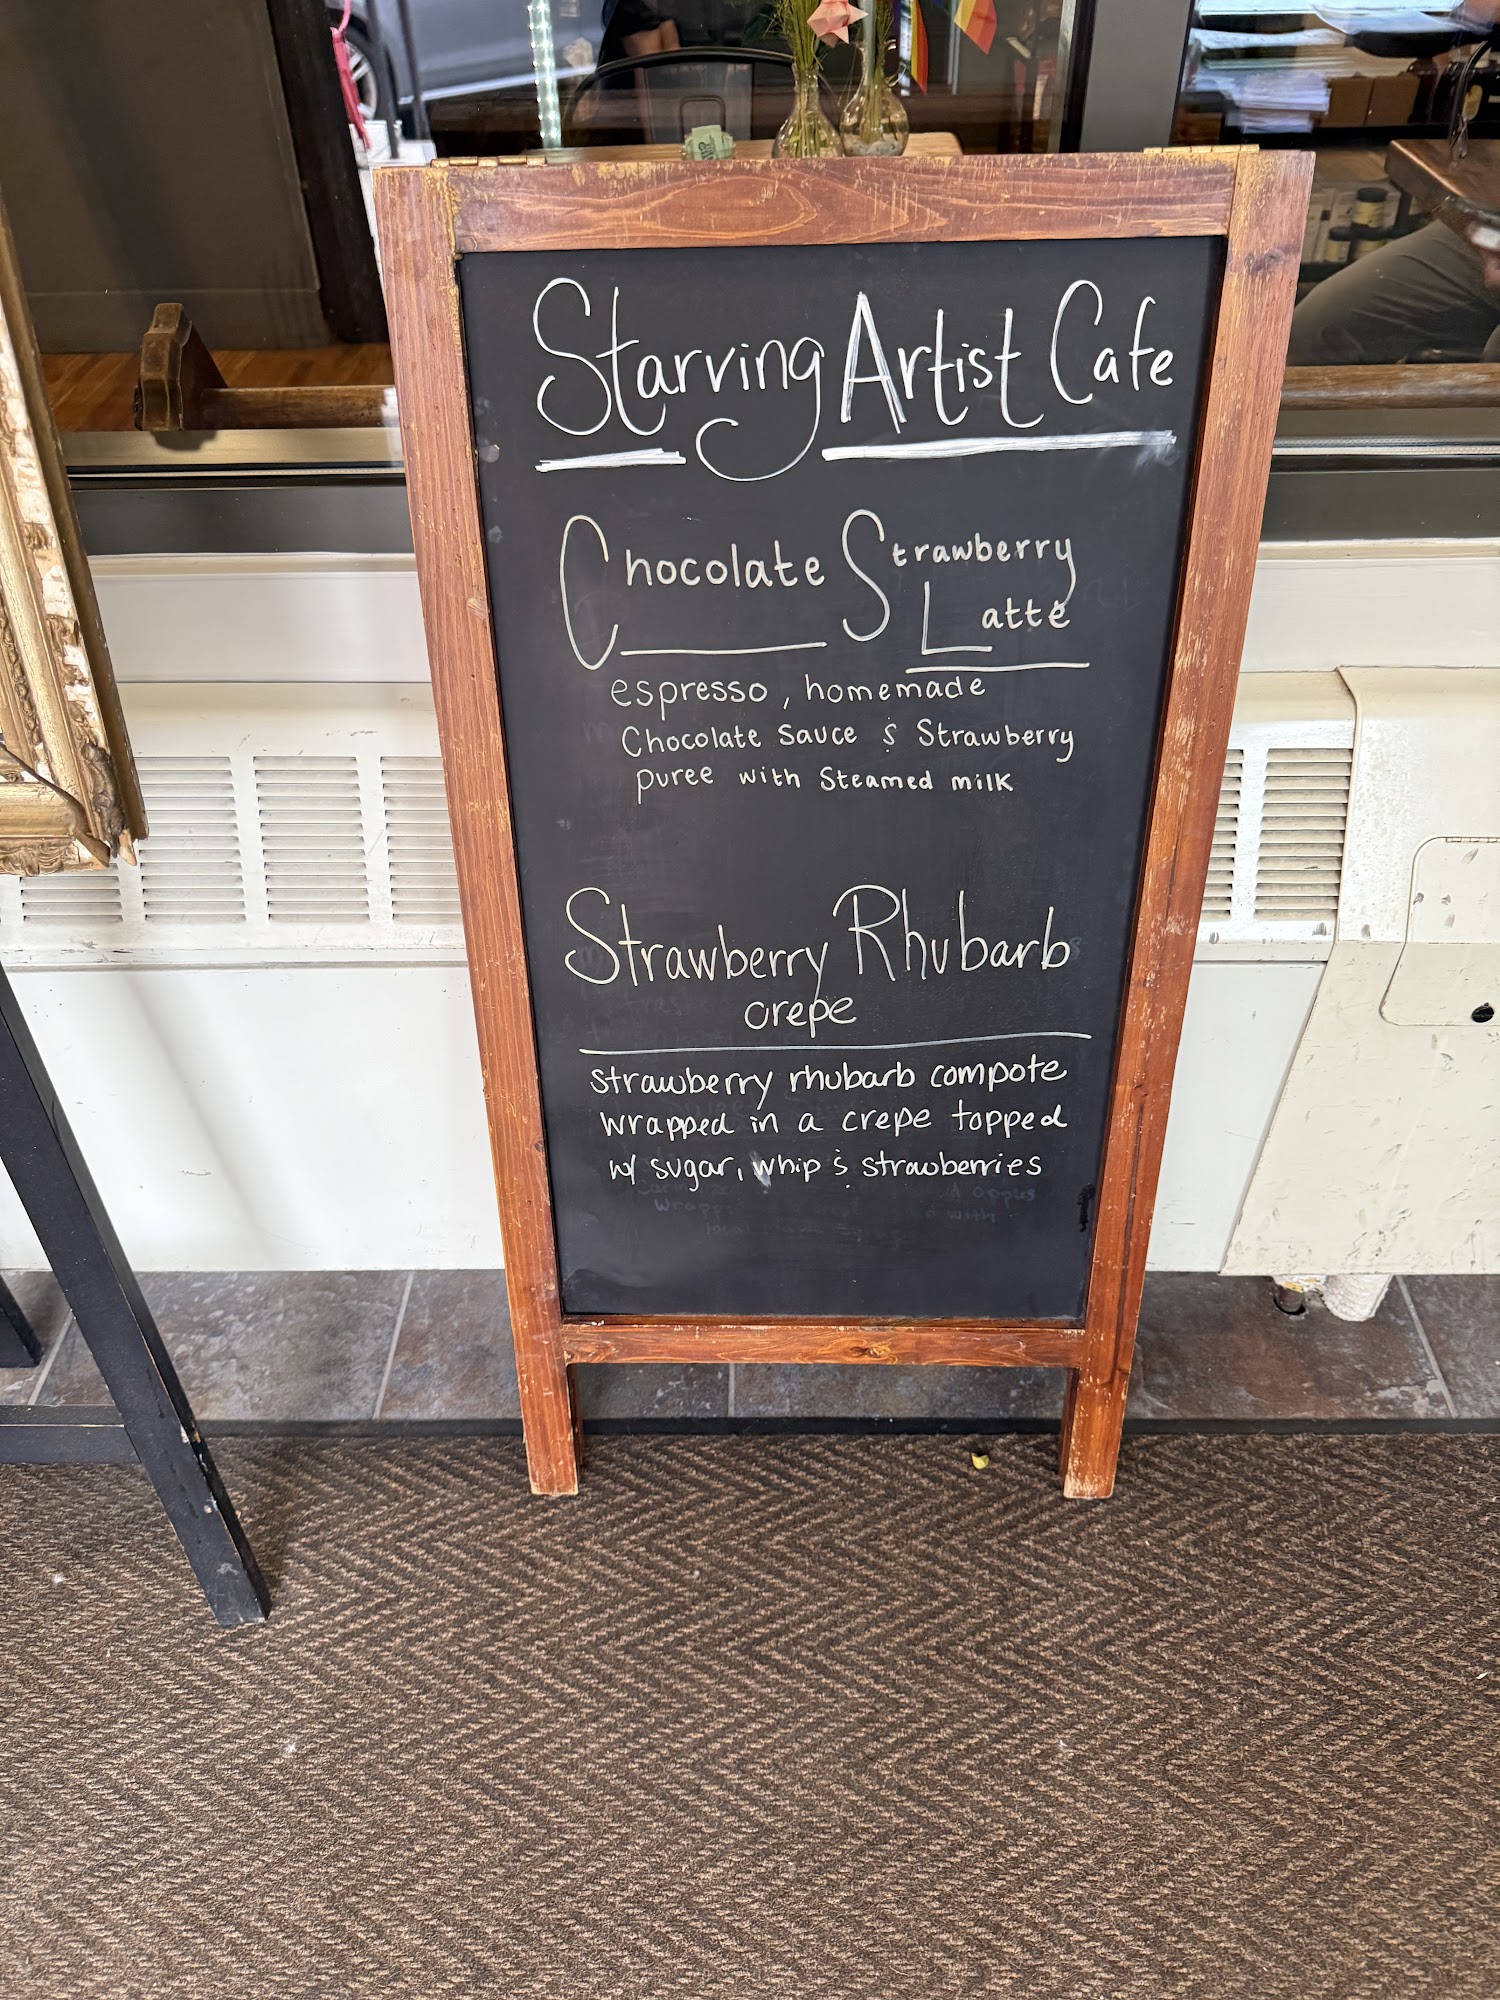 Starving Artist Cafe
Chocolate Strawberry
Latte
espresso, homemade
Chocolate Sauce & Strawberry
puree with Steamed milk
Strawberry Rhubarb
crepe
strawberry rhubarb compote
wrapped in a crepe topped
w/ sugar, whip & strawberries